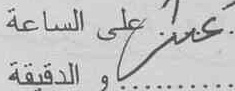 على الساعة
و الدقيقة